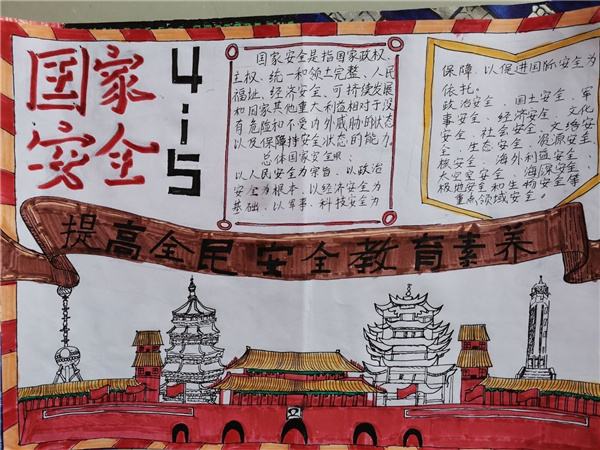 国家
安全
4·15
国家安全是指国家政权、
主权、统一和领土完整、人民
福祉、经济安全、可持续发展
和国家其他重大利益相对于没
有危险和不受内外威胁的状态
以及保障持安全状态的能力
总体国家安全观:
以人民安全为宗旨、以政治
安全为根本、以经济安全为
基础、以军事、科技安全为
保障、以促进国际安全为
依托。
政治安全、国土安全、军
事安全、经济安全、文化
安全、社会安全、安
全、生态安全、资源安全
核安全、海外利益安全、
太空安全、安全、
极地安全和生物安全等
重点领域安全。
提高全民安全教育素养